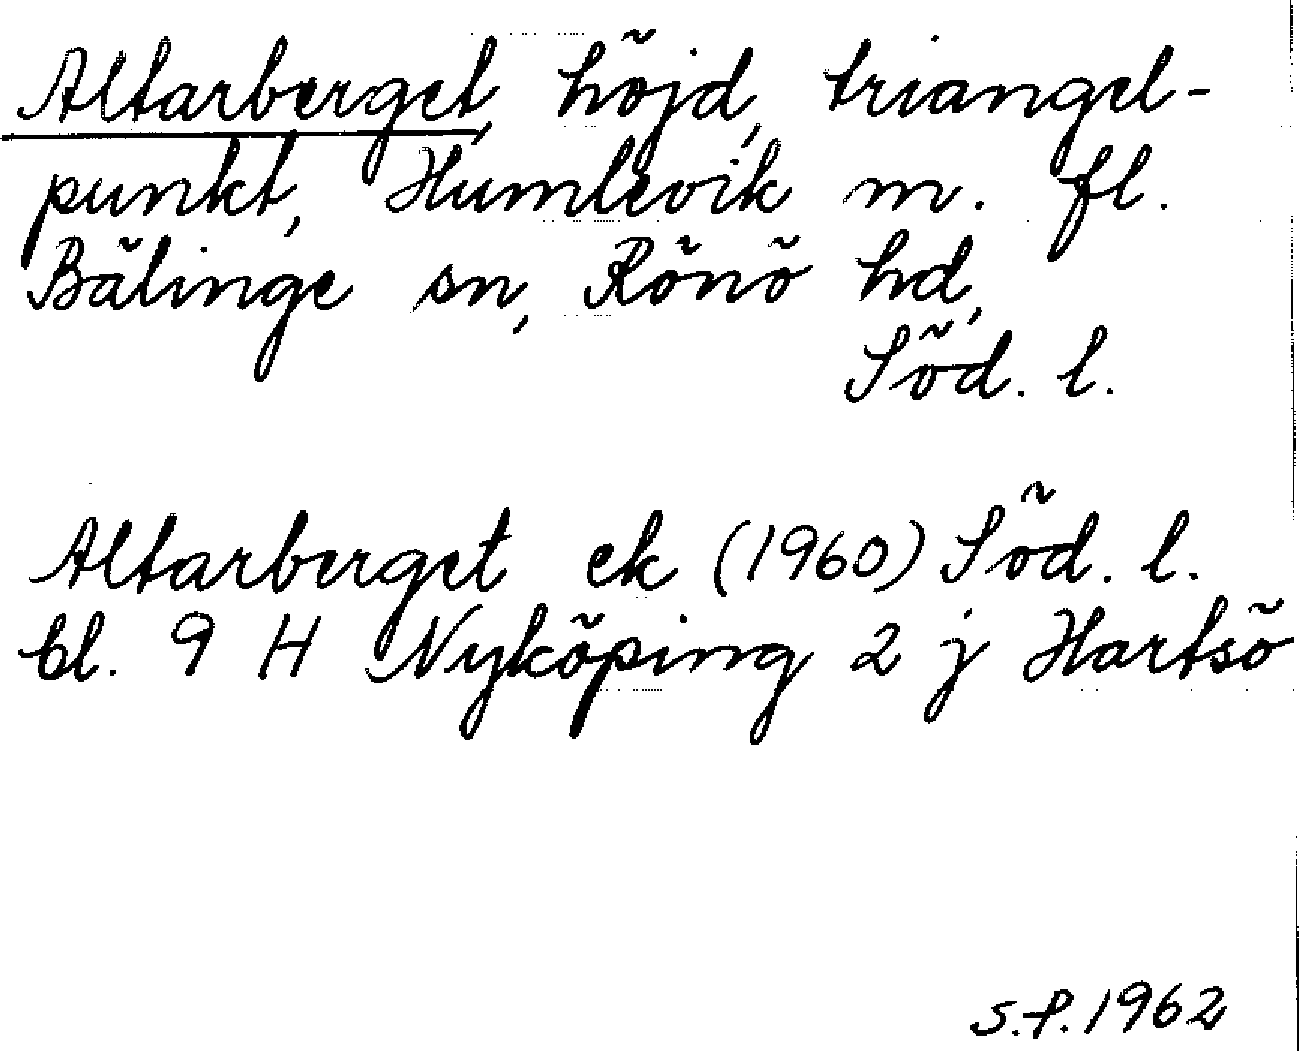 Altarberget, höjd, triangel-
punkt, Humlevik m. fl.
Bälinge sn, Rönö hd,
Söd. l.
Altarberget ek (1960) Söd. l.
bl. 9 H Nyköping 2 j Hartsö
S.P. 1962